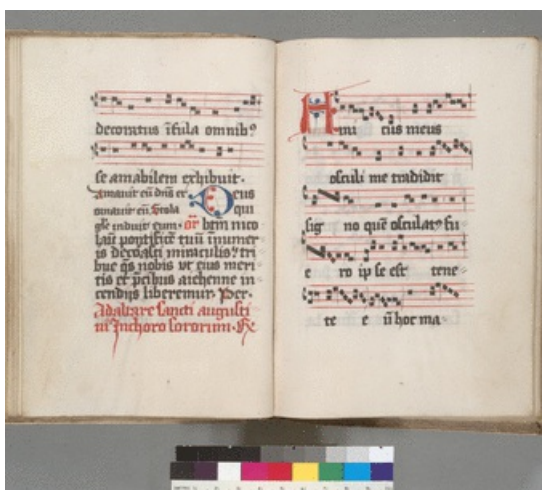 decoratus īfula omnibꝰ
se amabilem exhibuit.
Amauit eū dn̄s et Deus
ornauit eū. Stola qui
gl̄ie induit eum. or̄ btm̄ nico
laū pontificē tuū inumer
is decorasti miraculis tri
bue q̄s nobis vt eius meri
tis et p̄cibus aiehenne in
cendijs liberemur. Per.
Ad altare sancti augusti
ni In choro sororum. R̄
Ami cus meus
osculi me tradidit
sig no quē osculatꝰ fu
e ro ip se est tene
te e ū hoc ma.